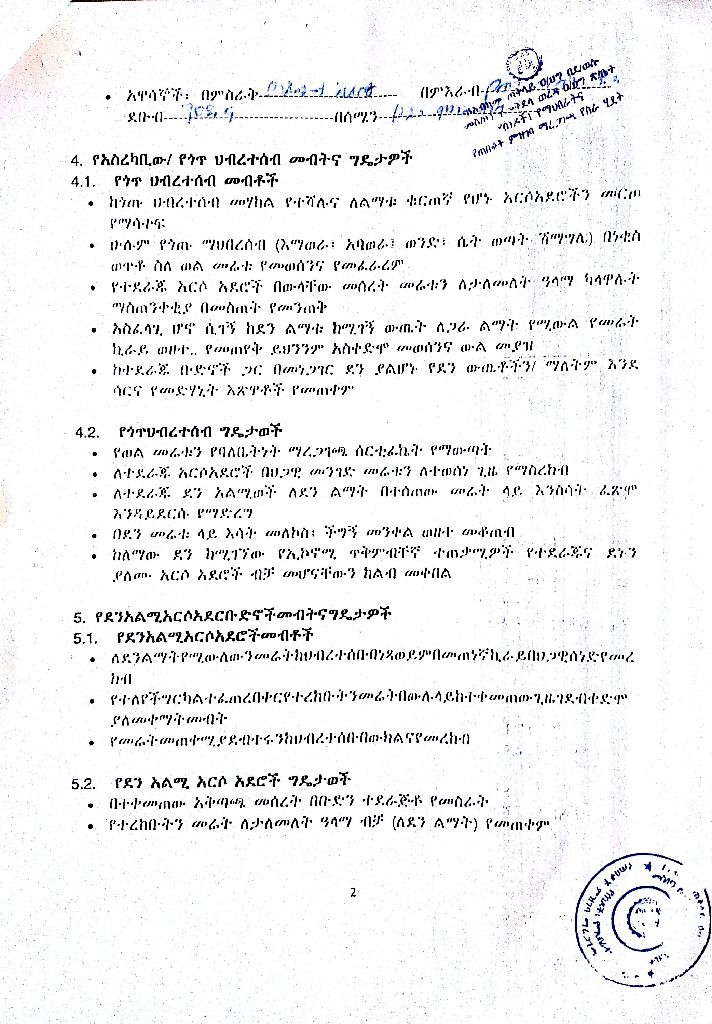 • አዋሳኞች፡ በምስራቅ በምእራብ
ደቡብ በሰሜን
4. የአስረካቢው/ የጎጥ ህብረተሰብ መብትና ግዴታዎች
4.1. የጎጥ ህብረተሰብ መብቶች
• ከጎጡ ህብረተሰብ መሃከል የተሻሉና ለልማቱ ቁርጠኛ የሆኑ አርሶአደሮችን መርጦ
የማሳተፍ
• ሁሉም የጎጡ ማህበረሰብ (እማወራ፣ አባወራ፣ ወንድ፣ ሴት ወጣት ሽማግሌ) በነቂስ
ወጥቶ ስለ ወል መሬቱ የመወሰንና የመፈራረም
• የተደራጁ አርሶ አደሮች በውላቸው መሰረት መሬቱን ለታለመለት ዓላማ ካላዋሉት
ማስጠንቀቂያ በመስጠት የመንጠቅ
• አስፈላጊ ሆኖ ሲገኝ ከደን ልማቱ ከሚገኝ ውጤት ለጋራ ልማት የሚውል የመሬት
ኪራይ ወዘተ.. የመጠየቅ ይህንንም አስቀድሞ መወሰንና ውል መያዝ
• ከተደራጁ ቡድኖች ጋር በመነጋገር ደን ያልሆኑ የደን ውጤቶችን/ ማለትም እንደ
ሳርና የመድሃኒት እጽዋቶች የመጠቀም
4.2. የጎጥህብረተሰብ ግዴታወች
• የወል መሬቱን የባለቤትነት ማረጋገጫ ሰርቲፊኬት የማውጣት
• ለተደራጁ አርሶአደሮች በህጋዊ መንገድ መሬቱን ለተወሰነ ጊዜ የማስረከብ
• ለተደራጁ ደን አልሚወች ለደን ልማት በተሰጠው መሬት ላይ እንስሳት ፈጽሞ
እንዳይደርሱ የማድረግ
• በደን መሬቱ ላይ እሳት መለኮስ፣ ችግኝ መንቀል ወዘተ መቆጠብ
• ከለማው ደን ከሚገኘው የኢኮኖሚ ጥቅምብቸኛ ተጠቃሚዎች የተደራጁና ደኑን
ያለሙ አርሶ አደሮች ብቻ መሆናቸውን ከልብ መቀበል
5. የደንአልሚአርሶአደርቡድኖችመብትናግዴታዎች
5.1. የደንአልሚአርሶአደሮችመብቶች
• ለደንልማትየሚውለውንመሬትከህብረተሰቡበነጻወይምበመጠነኛኪራይበህጋዊሰነድየመረ
ከብ
• የተለየችግርካልተፈጠረበቀርየተረከቡትንመሬትበውሉላይከተቀመጠውጊዜገደብቀድሞ
ያለመቀማትመብት
• የመሬትመጠቀሚያደብተሩንከህብረተሰቡበውክልናየመረከብ
5.2. የደን አልሚ አርሶ አደሮች ግዴታወች
• በተቀመጠው አቅጣጫ መሰረት በቡድን ተደራጅቶ የመስራት
• የተረከቡትን መሬት ለታለመለት ዓላማ ብቻ (ለደን ልማት) የመጠቀም
2